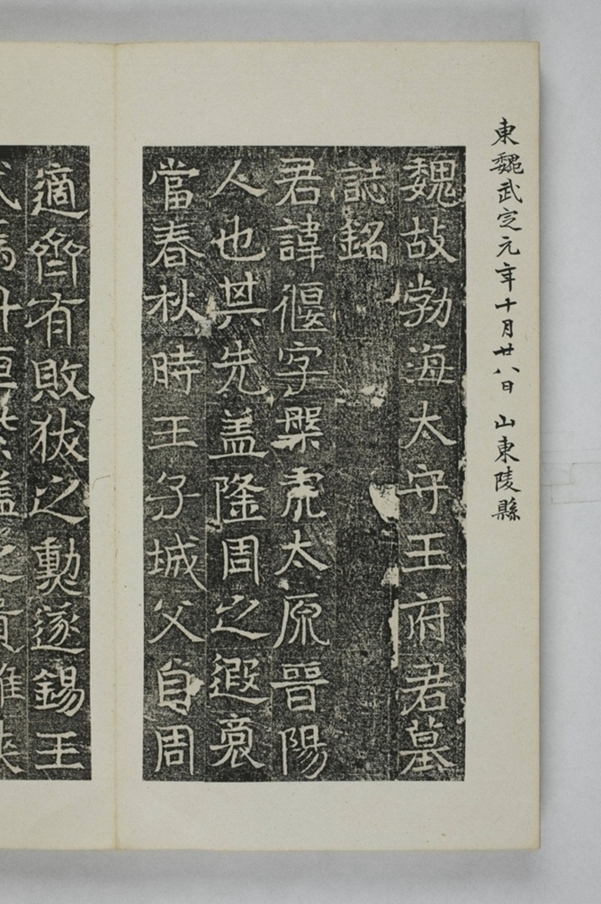 東魏武定元年十月廿八日 山東陵縣
魏故勃海太守王府君墓
誌銘
君諱偃字槃虎太原晉陽
人也其先盖隆周之遐裔
當春秋時王子城父自周
適齊有敗狄之勳遂錫王